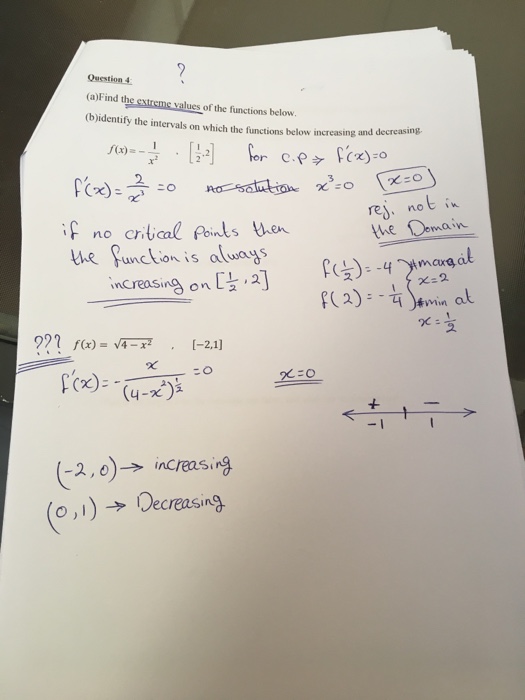 ?
Question 4:
(a)Find the extreme values of the functions below.
(b)identify the intervals on which the functions below increasing and decreasing.
f(x) = - 1/x² . [1/2, 2] for c.p ⇒ f'(x)=0
f'(x) = 2/x³ = 0 no solution x³=0 x=0
rej. not in
the Domain
if no critical points then
the function is always
increasing on [1/2, 2]
f(1/2) = -4 max at
x=2
f(2) = -1/4 min at
x = 1/2
??? f(x) = √4 - x² , [-2,1]
f'(x) = - x/(4-x²)^1/2 = 0 x=0
+ -
-1 1
(-2,0) → increasing
(0,1) → Decreasing